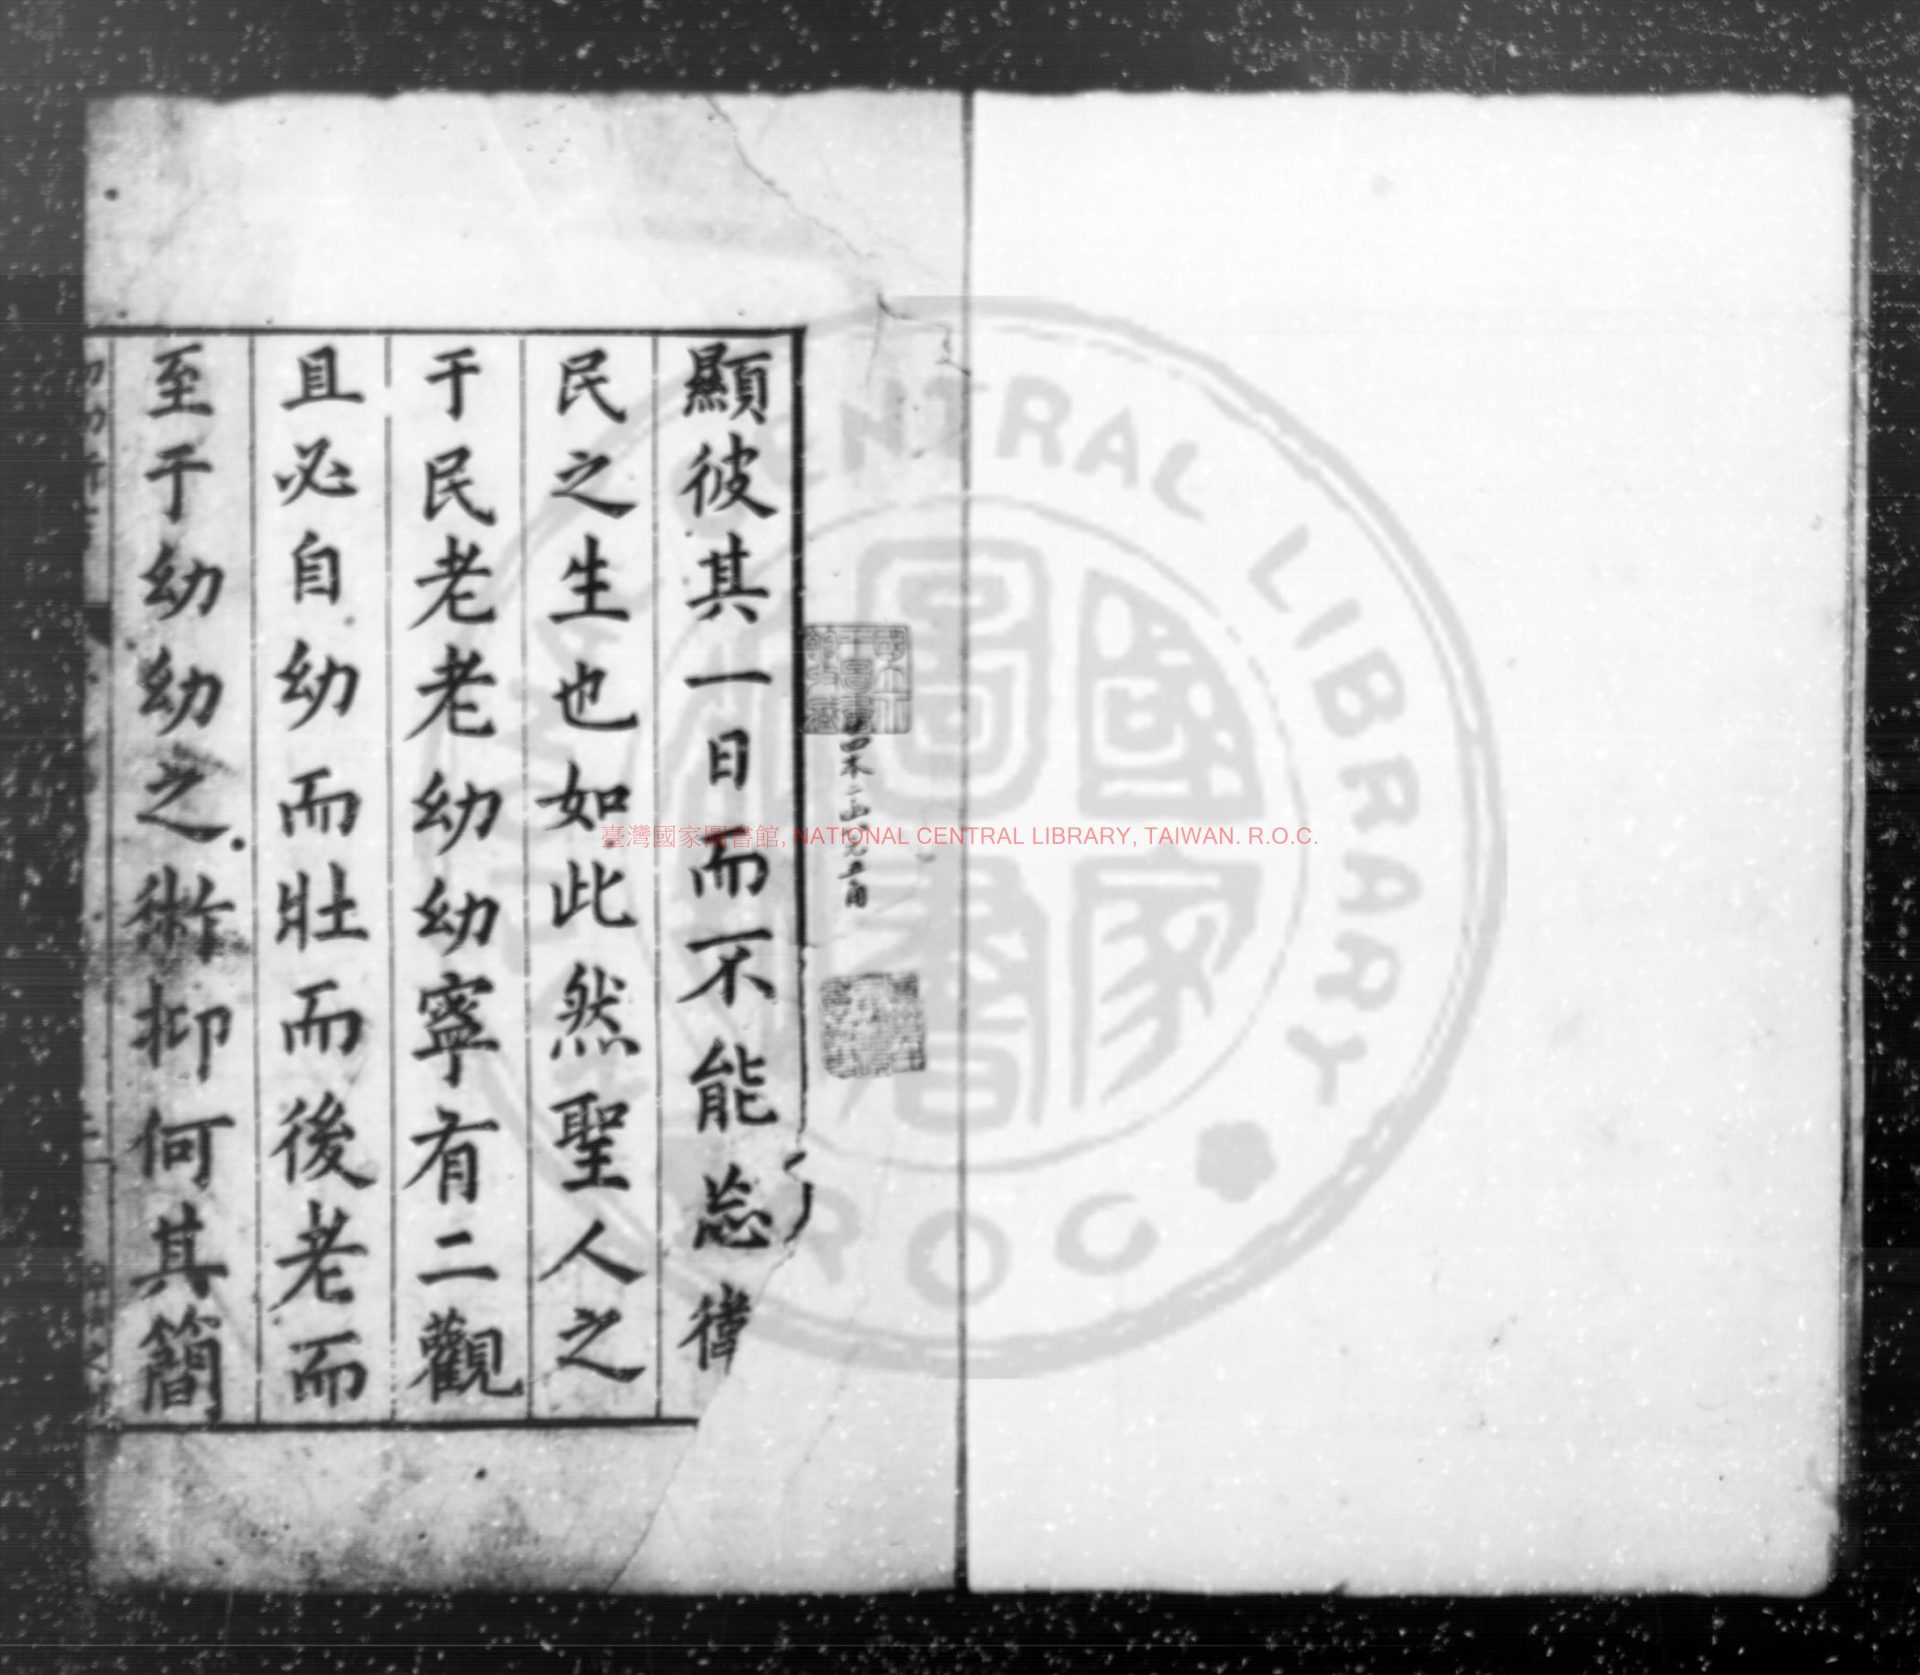 顯彼其一日而不能忘律
民之生也如此然聖人之
于民老老幼幼寧有二觀
且必自幼而壯而後老而
至于幼幼之術抑何其簡
臺灣國家圖書館, NATIONAL CENTRAL LIBRARY, TAIWAN. R.O.C.
CENTRAL LIBRARY
國家圖書
ROC